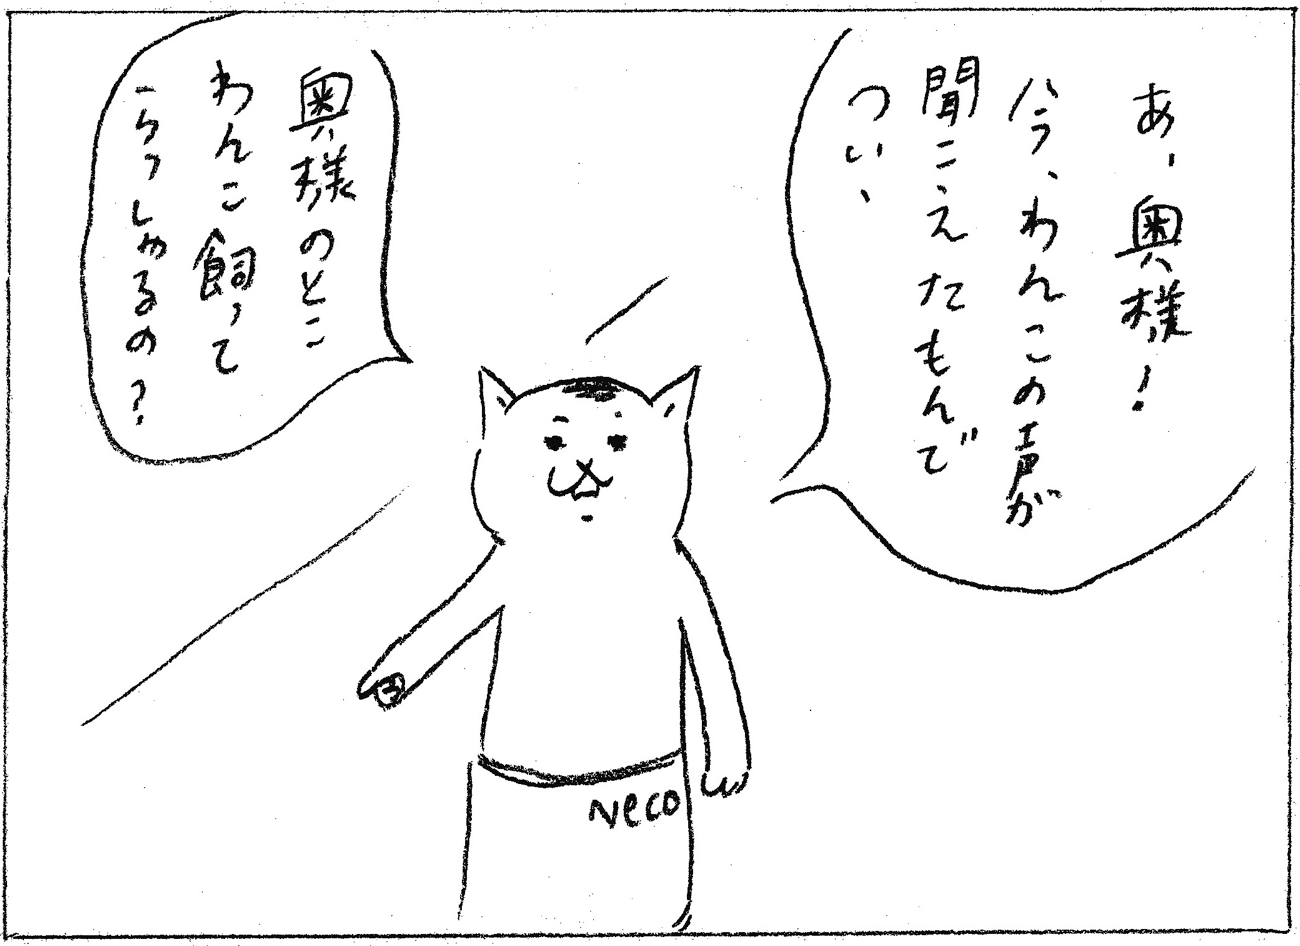 あ、奥様!
今、わんこの声が
聞こえたもんで
つい、
奥様のとこ
わんこ飼って
らっしゃるの?
Neco